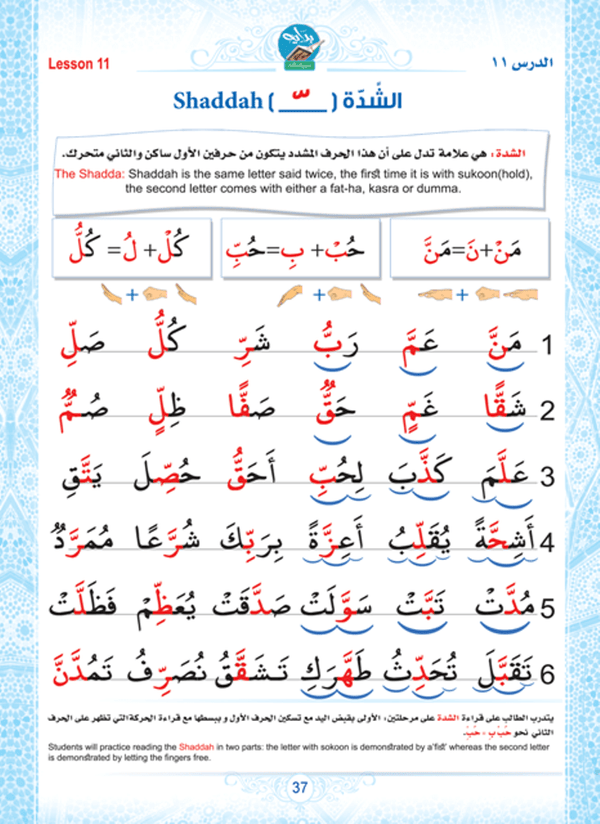 بداية
Lesson 11
الدرس ١١
Shaddah ( ـّـ ) الشِّدّة
الشدة : هي علامة تدل على أن هذا الحرف المشدد يتكون من حرفين الأول ساكن والثاني متحرك.
The Shadda: Shaddah is the same letter said twice, the first time it is with sukoon(hold),
the second letter comes with either a fat-ha, kasra or dumma.
مَنْ+نَ=مَنَّ
حُبْ+ بِ=حُبِّ
كُلْ+ لُ= كُلُّ
1 مَنَّ عَمَّ رَبُّ شَرِّ كُلُّ صَلِّ
2 شَقًّا غَمٍّ حَقٌّ صَفًّا ظِلٍّ صُمٌّ
3 عَلَّمَ كَذَّبَ لِحُبِّ أَحَقُّ حُصِّلَ يَتَّقِ
4 أَشِحَّةً يُقَلِّبُ أَعِزَّةً بِرَبِّكَ شُرَّعًا مُمَرَّدٌ
5 مُدَّتْ تَبَّتْ سَوَّلَتْ صَدَّقَتْ يُعَظِّمْ فَظَلَّتْ
6 تَقَبَّلَ تُحَدِّثُ طَهَّرَكِ تَشَقَّقُ نُصَرِّفُ تَمُدَّنَّ
يتدرب الطالب على قراءة الشدة على مرحلتين، الأولى بقبض اليد مع تسكين الحرف الأول وببسطها مع قراءة الحركة التي تظهر على الحرف
الثاني نحو حَبْ بَ = حَبَّ.
Students will practice reading the Shaddah in two parts: the letter with sokoon is demonstrated by a'fist' whereas the second letter
is demonstrated by letting the fingers free.
37